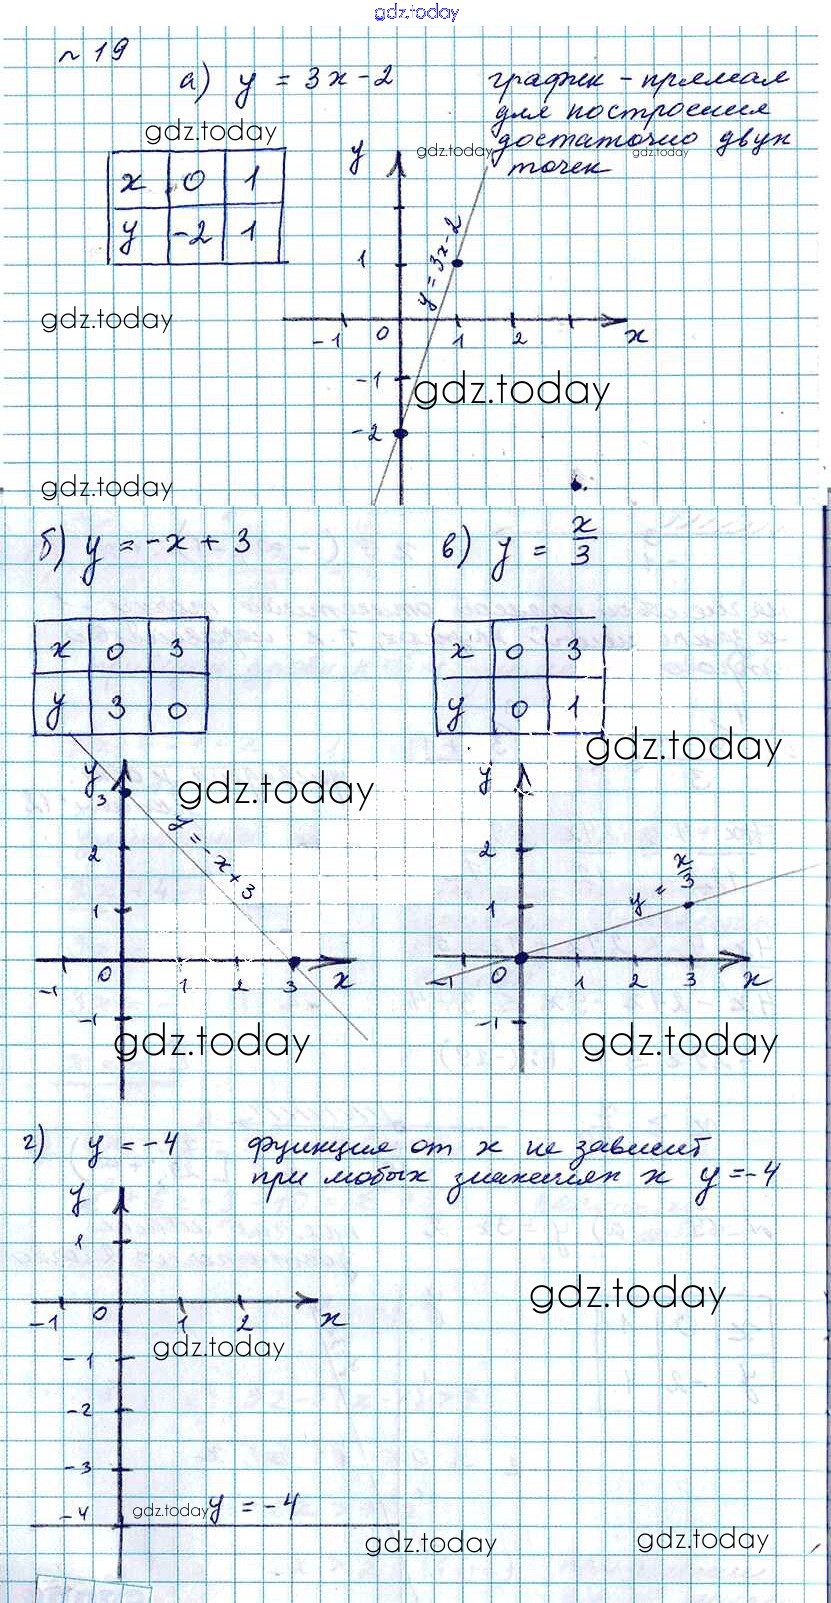 gdz.today
№ 19
а) y = 3x - 2
график - прямая
для построения
достаточно двух
точек
gdz.today
gdz.today
gdz.today
x 0 1
y -2 1
y
1
y = 3x - 2
gdz.today
-1 0 1 2 x
-1
gdz.today
-2
gdz.today
б) y = -x + 3
в) y = x/3
x 0 3
y 3 0
x 0 3
y 0 1
gdz.today
y
3
gdz.today
y = -x + 3
2
1
-1 0 1 2 3 x
-1
gdz.today
y
2
y = x/3
1
-1 0 1 2 3 x
-1
gdz.today
г) y = -4 функция от x не зависит
при любых значениях x y = -4
y
1
gdz.today
-1 0 1 2 x
gdz.today
-1
-2
-3
-4
gdz.today
y = -4
gdz.today
gdz.today